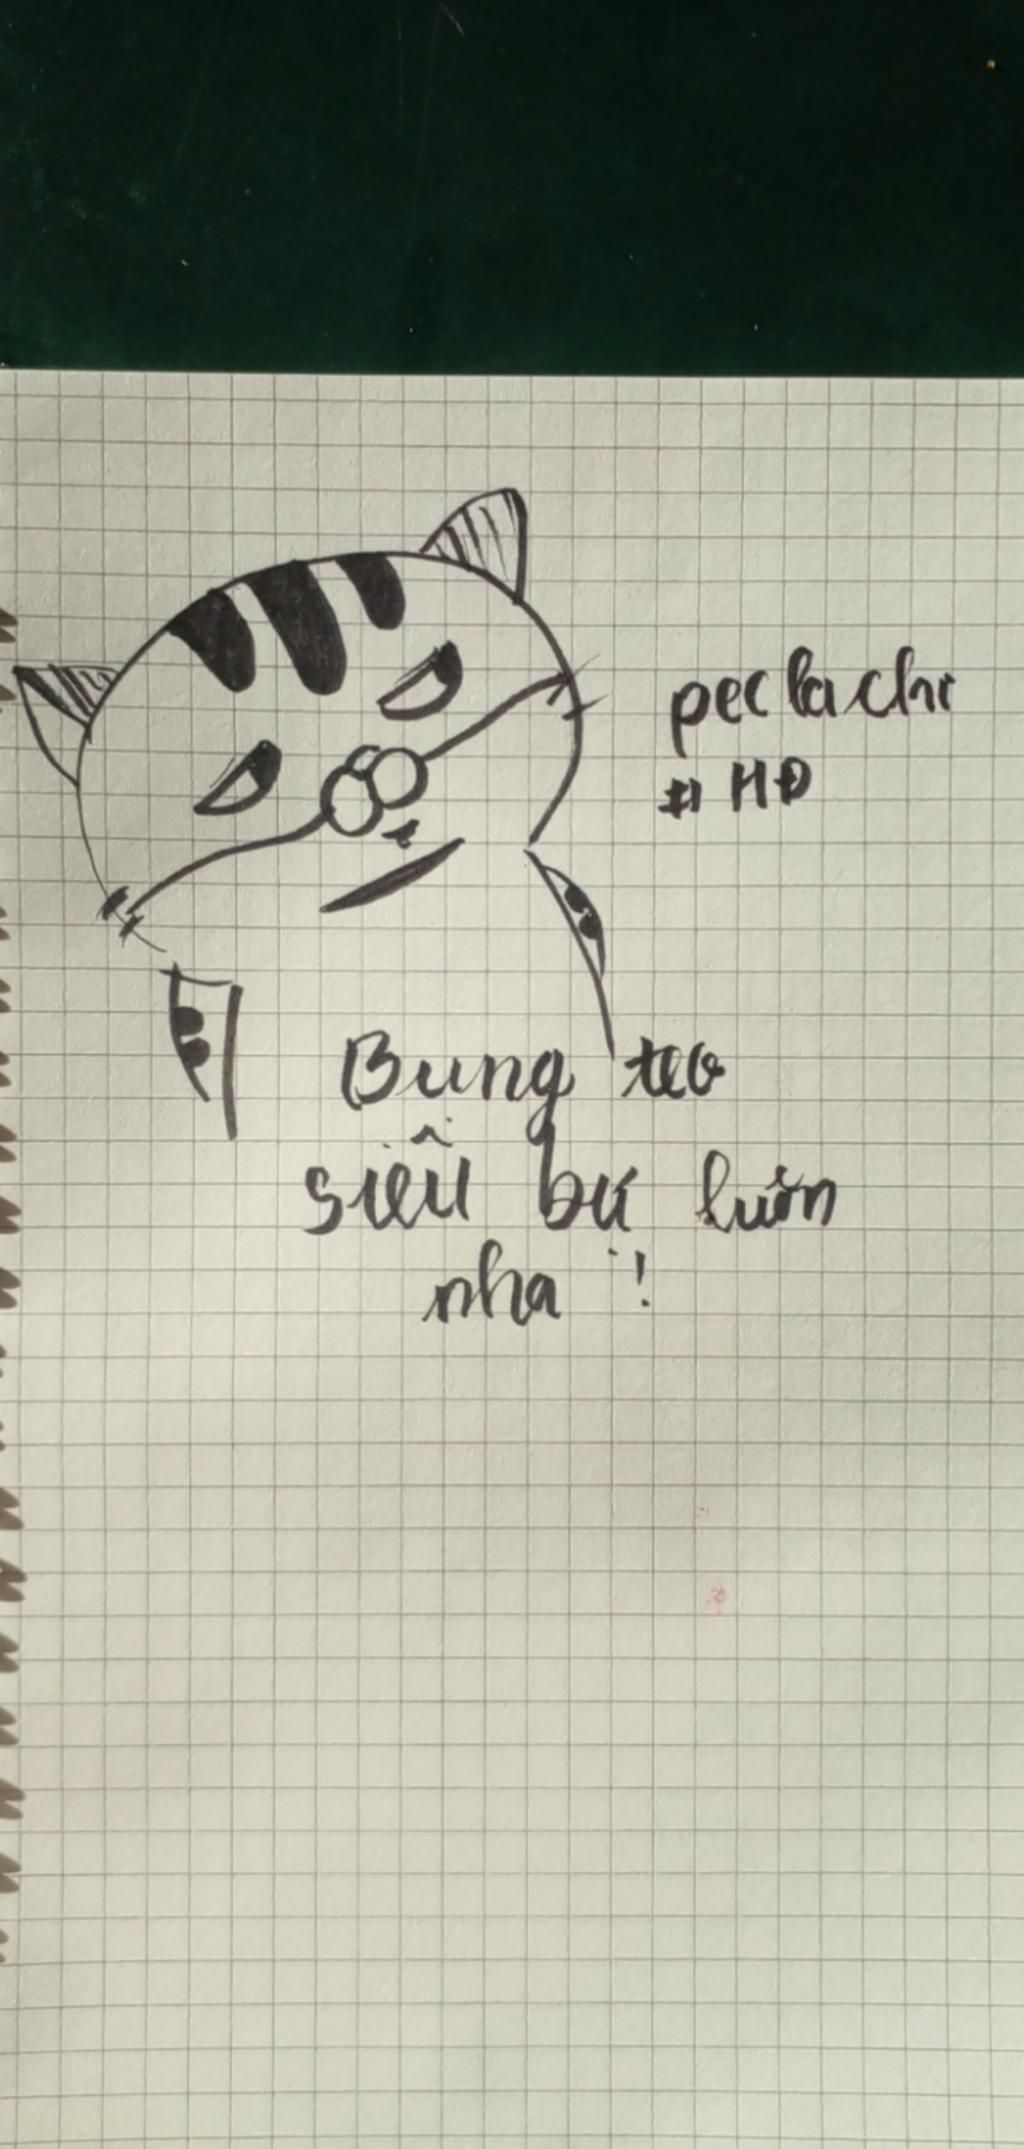 pec lachi
# HĐ
Bung teo
siêu bư luôn
nha !